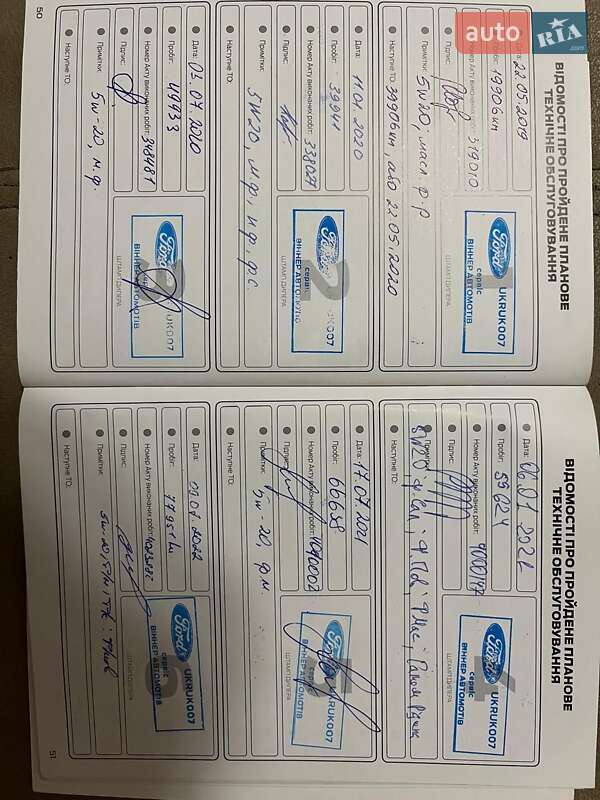 auto RIA.com
ВІДОМОСТІ ПРО ПРОЙДЕНЕ ПЛАНОВЕ
ТЕХНІЧНЕ ОБСЛУГОВУВАННЯ
Дата: 22.05.2019
Пробіг: 19906 км
Номер Акту виконаних робіт: 319010
Підпис:
Примітки: 5W20, масл. ф-р
Наступне ТО: 39906 км, або 22.05.2020
1
Ford
UKRUK007
сервіс
ВІННЕР АВТОМОТІВ
ШТАМП ДИЛЕРА
Дата: 11.01.2020
Пробіг: 39941
Номер Акту виконаних робіт: 338027
Підпис:
Примітки: 5W20, м.ф., н.ф., ф.с.
Наступне ТО:
2
Ford
UKRUK007
сервіс
ВІННЕР АВТОМОТІВ
ШТАМП ДИЛЕРА
Дата: 03.07.2020
Пробіг: 49933
Номер Акту виконаних робіт: 348481
Підпис:
Примітки: 5w-20, м.ф.
Наступне ТО:
3
Ford
UKRUK007
сервіс
ВІННЕР АВТОМОТІВ
ШТАМП ДИЛЕРА
50
ВІДОМОСТІ ПРО ПРОЙДЕНЕ ПЛАНОВЕ
ТЕХНІЧНЕ ОБСЛУГОВУВАННЯ
Дата: 06.01 2021
Пробіг: 59624
Номер Акту виконаних робіт:
Підпис:
Примітки: 5W20
Наступне ТО:
4
Ford
UKRUK007
сервіс
ВІННЕР АВТОМОТІВ
ШТАМП ДИЛЕРА
Дата: 17.07.2021
Пробіг: 66668
Номер Акту виконаних робіт:
Підпис:
Примітки: 5w-20, ф.м.
Наступне ТО:
5
Ford
UKRUK007
сервіс
ВІННЕР АВТОМОТІВ
ШТАМП ДИЛЕРА
Дата:
Пробіг: 77951
Номер Акту виконаних робіт:
Підпис:
Примітки: 5w-20,
Наступне ТО:
6
Ford
UKRUK007
сервіс
ВІННЕР АВТОМОТІВ
ШТАМП ДИЛЕРА
51